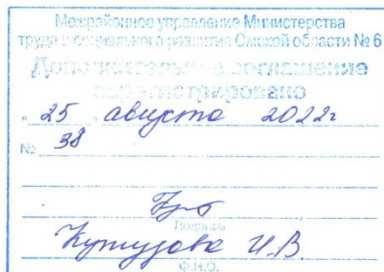 Межрайонное управление Министерства
труда и социального развития Омской области № 6
Дополнительное соглашение
зарегистрировано
" 25 " августа 2022г
№ 38
Подпись
И.В.
Ф.И.О.